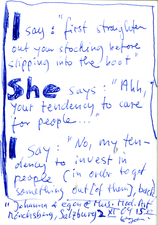 I say: "first straighten
out your stocking before
slipping into the boot"
She says: "Ahh,
your tendency to care
for people..."
I say: "No, my ten-
dency to invest in
people (in order to get
something out [of them], back.
Johanna & Egon @ Mus. Mod. Art
Mönchsberg, Salzburg 2 XI 04